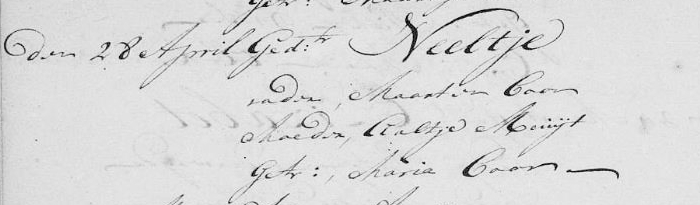 Getr: Maria
den 28 April Ged:tr Neeltje
vader, Maarten Coorn
Moeder, Aaltje Muijt
Getr:, Maria Coorn